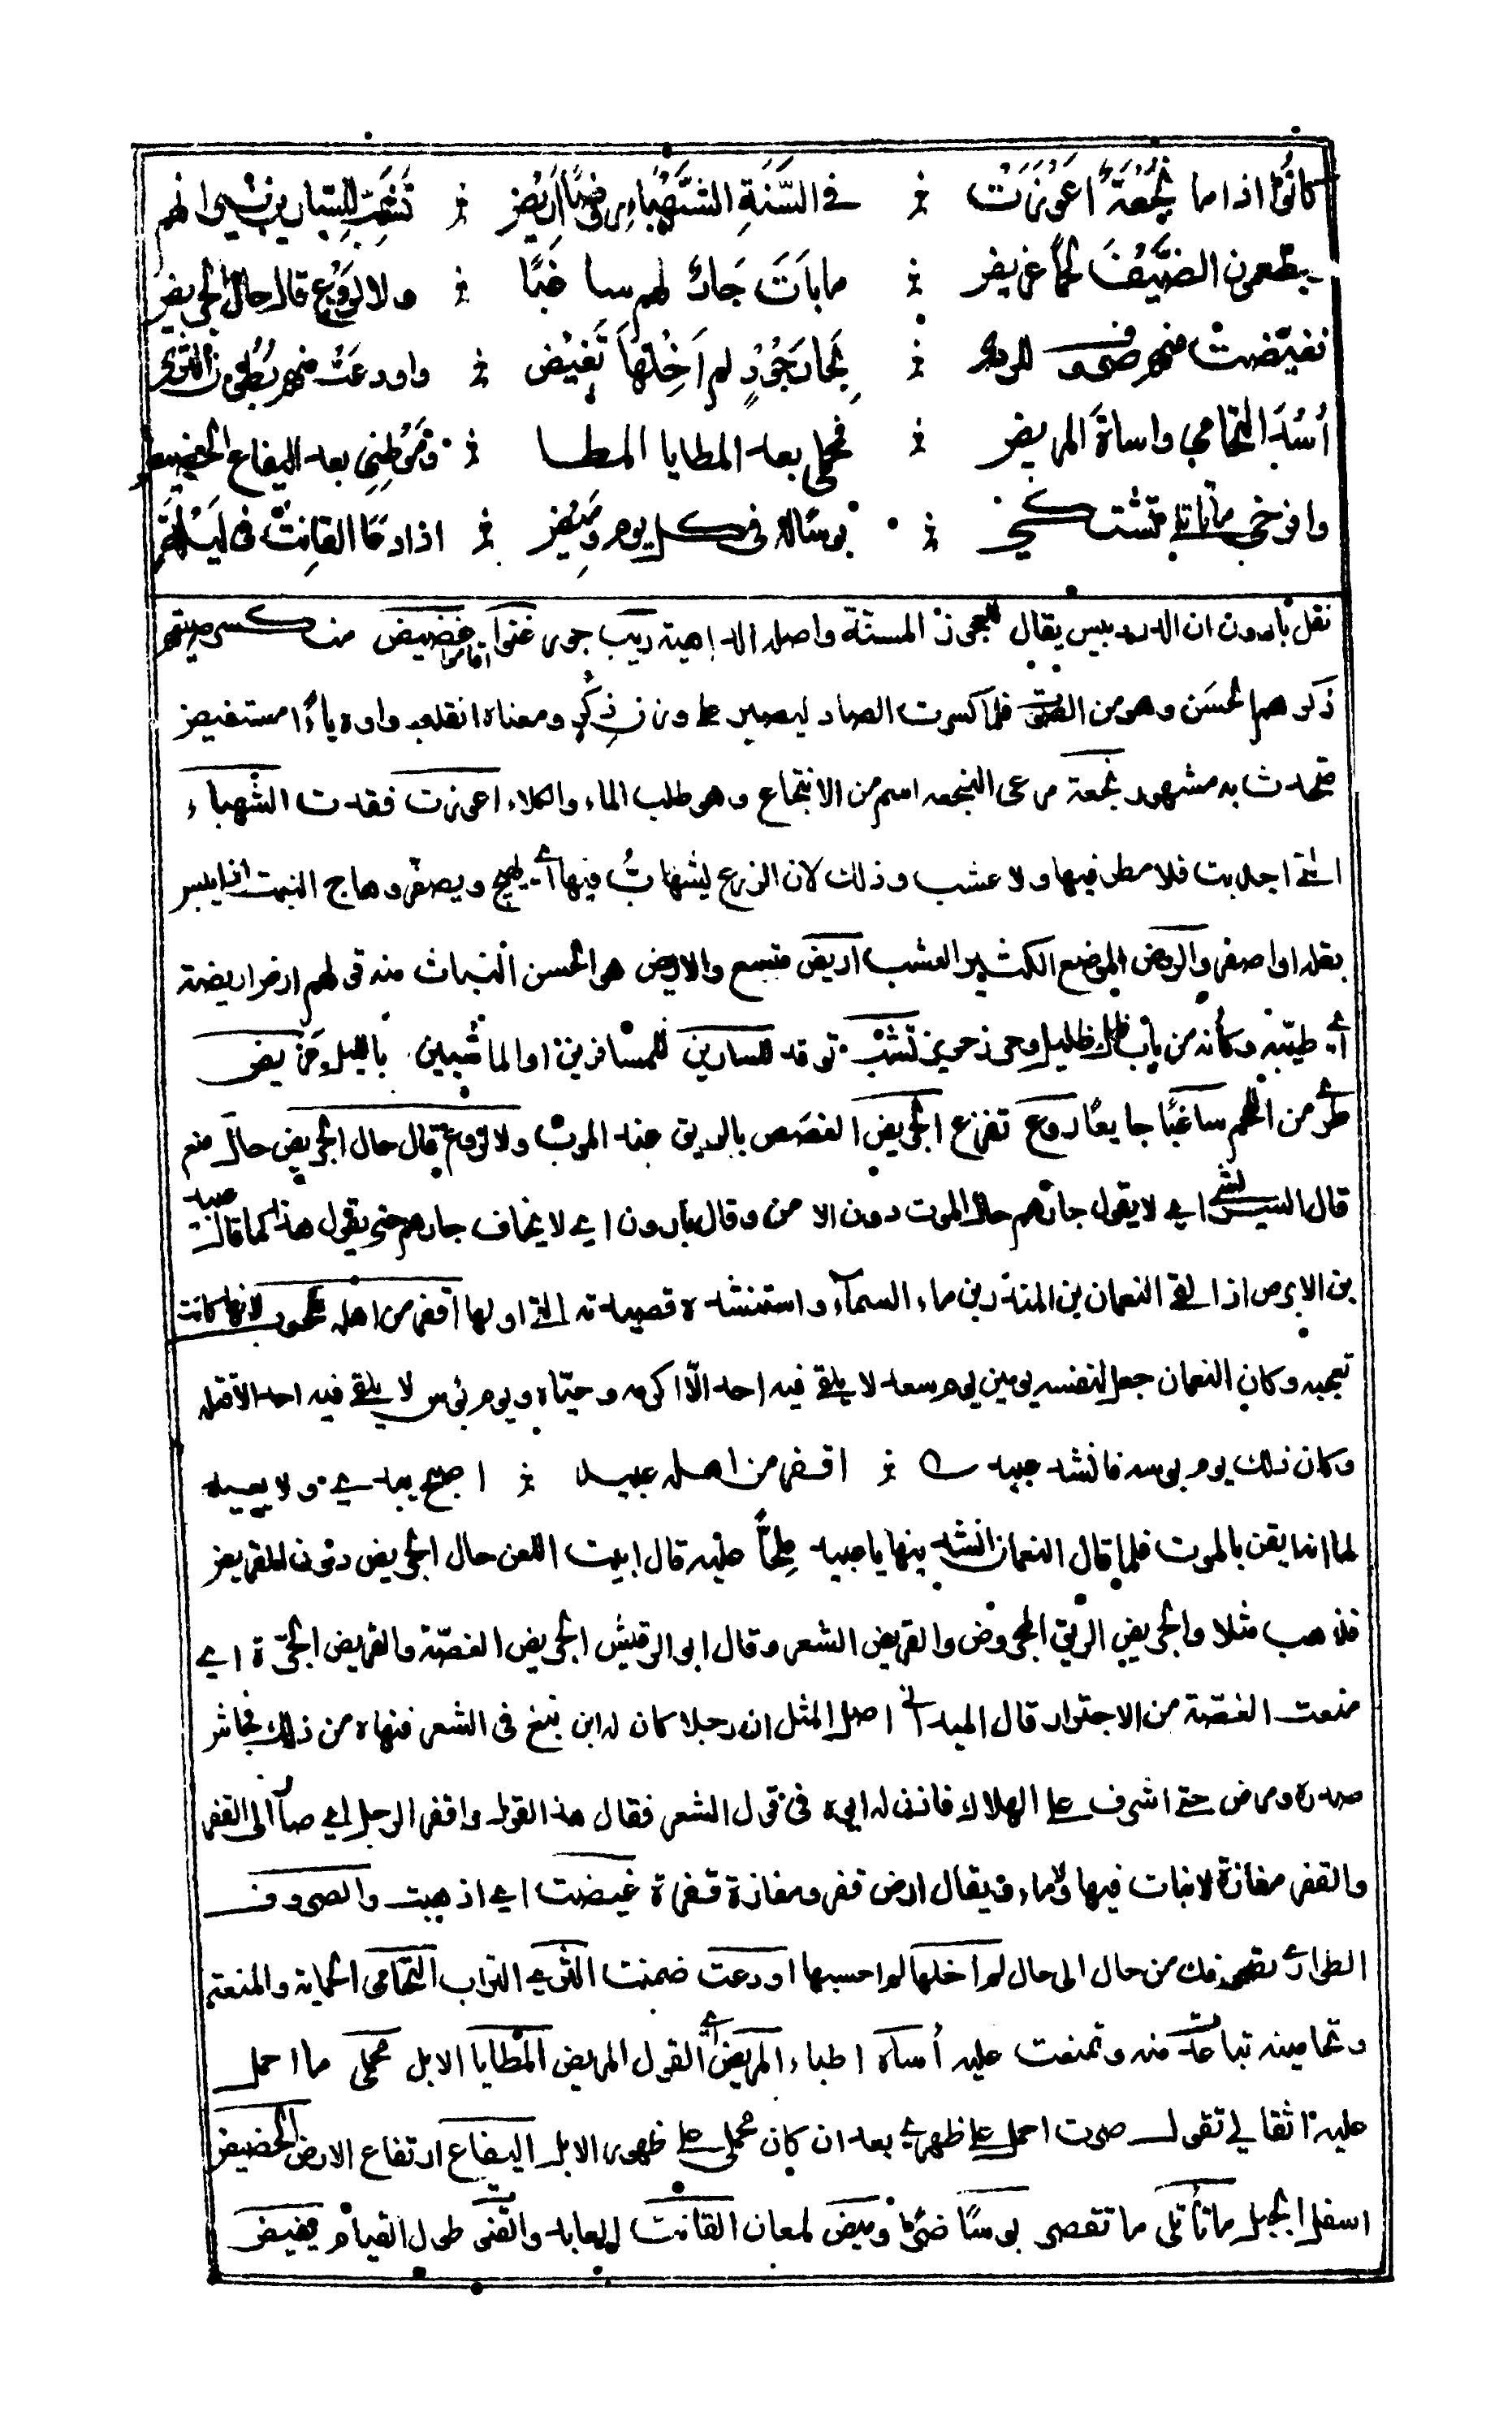 كانوا اذا ما نجعة اعوزت ⁘ في السنة الشهباء روضا اريض ⁘ تشب للسارين نيرانهم
ويطعمون الضيف لحما غريض ⁘ ما بات جار لهم ساغبا ⁘ ولا لروع قال حال الجريض
فغيضت منهم صروف الردى ⁘ بحار جود لم اخلها تغيض ⁘ واودعت منهم بطون الثرى
اسد التحامي واساة المريض ⁘ فمحملي بعد المطايا المطا ⁘ وموطني بعد اليفاع الحضيض
وافرخي ما تاتلي تشتكي ⁘ بوسا له في كل يوم وميض ⁘ اذا دعا القانت في ليله
نقل بارون ان الدردبيس يقال للعجوز المسنة واصله الداهية ريب جور غنوا اقاموا غضيض من كسر صيتهم
ذكرهم الحسن وهو من الصوت فلما كسرت الصاد ليصير على وزن ذكر ومعناه انقلب واوه ياء مستفيض
يتحدث به مشهور نجعة مرعى النجعه اسم من الانتجاع وهو طلب الماء والكلاء اعوزت فقدت الشهباء
التي اجدبت فلا مطر فيها ولا عشب وذلك لان الزرع يشهاب فيها اي يهيج ويصفر وهاج النبت اذا يبس
بقله او اصفر والروض الموضع الكثير العشب اريض متسع والاريض هو الحسن النبات منه قولهم ارض اريضة
اي طيبة وكانه من باب ظل ظليل وحرز حريز تشب توقد للسارين للمسافرين او الماشيين بالليل غريض
طري من اللحم ساغبا جايعا روع تفزع الجريض الغصص بالريق عند الموت ولا لروع قال حال الجريض حال منع
قال الشريشي اي لا يقول جارهم حال الموت دون الامن وقال بارون اي لا يخاف جارهم حتى يقول هذا كما قال عبيد
بن الابرص اذا لقي النعمان بن المنذر بن ماء السمآء واستنشده قصيدته التي اولها اقفر من اهله ملحوب لانها كانت
تعجبه وكان النعمان جعل لنفسه يومين يوم سعد لا يلقى فيه احد الا اكرمه وحياه ويوم بؤس لا يلقى فيه احد الا قتله
وكان ذلك يوم بوسه فانشد عبيد ⁘ اقفر من اهله عبيد ⁘ اصبح يبدي ولا يعيد
لما انه ايقن بالموت فلما قال النعمان انشدنيها يا عبيد ملحا عليه قال ابيت اللعن حال الجريض دون القريض
فذهب مثلا والجريض الريق المجروض والقريض الشعر وقال ابو الرقيش الجريض الغصة والقريض الجرة اي
منعت الغصة من الاجترار قال الميداني اصل المثل ان رجلا كان له ابن نبغ في الشعر فنهاه من ذلك فجاش
صدره ومرض حتى اشرف على الهلاك فاذن له ابوه في قول الشعر فقال هذا القول واقفر الرجل اي صار الى القفر
والقفر مفازة لا نبات فيها ولا ماء ويقال ارض قفر ومفازة قفرة غيضت اي اذهبت والصروف
الطواري تصرفك من حال الى حال لم اخلها لم احسبها اودعت ضمنت الثرى التراب التحامي الحماية والمنعة
وتحامينه تباعدت منه وتمنعت عليه أساة اطباء المريض اي القول المريض المطايا الابل محملي ما احمل
عليه اثقالي تقول صرت احمل على ظهري بعد ان كان محملي على ظهور الابل اليفاع ارتفاع الارض الحضيض
اسفل الجبل ما تأتلي ما تقصر بوسا ضرا وميض لمعان القانت العابد والقنوت طول القيام يفيض